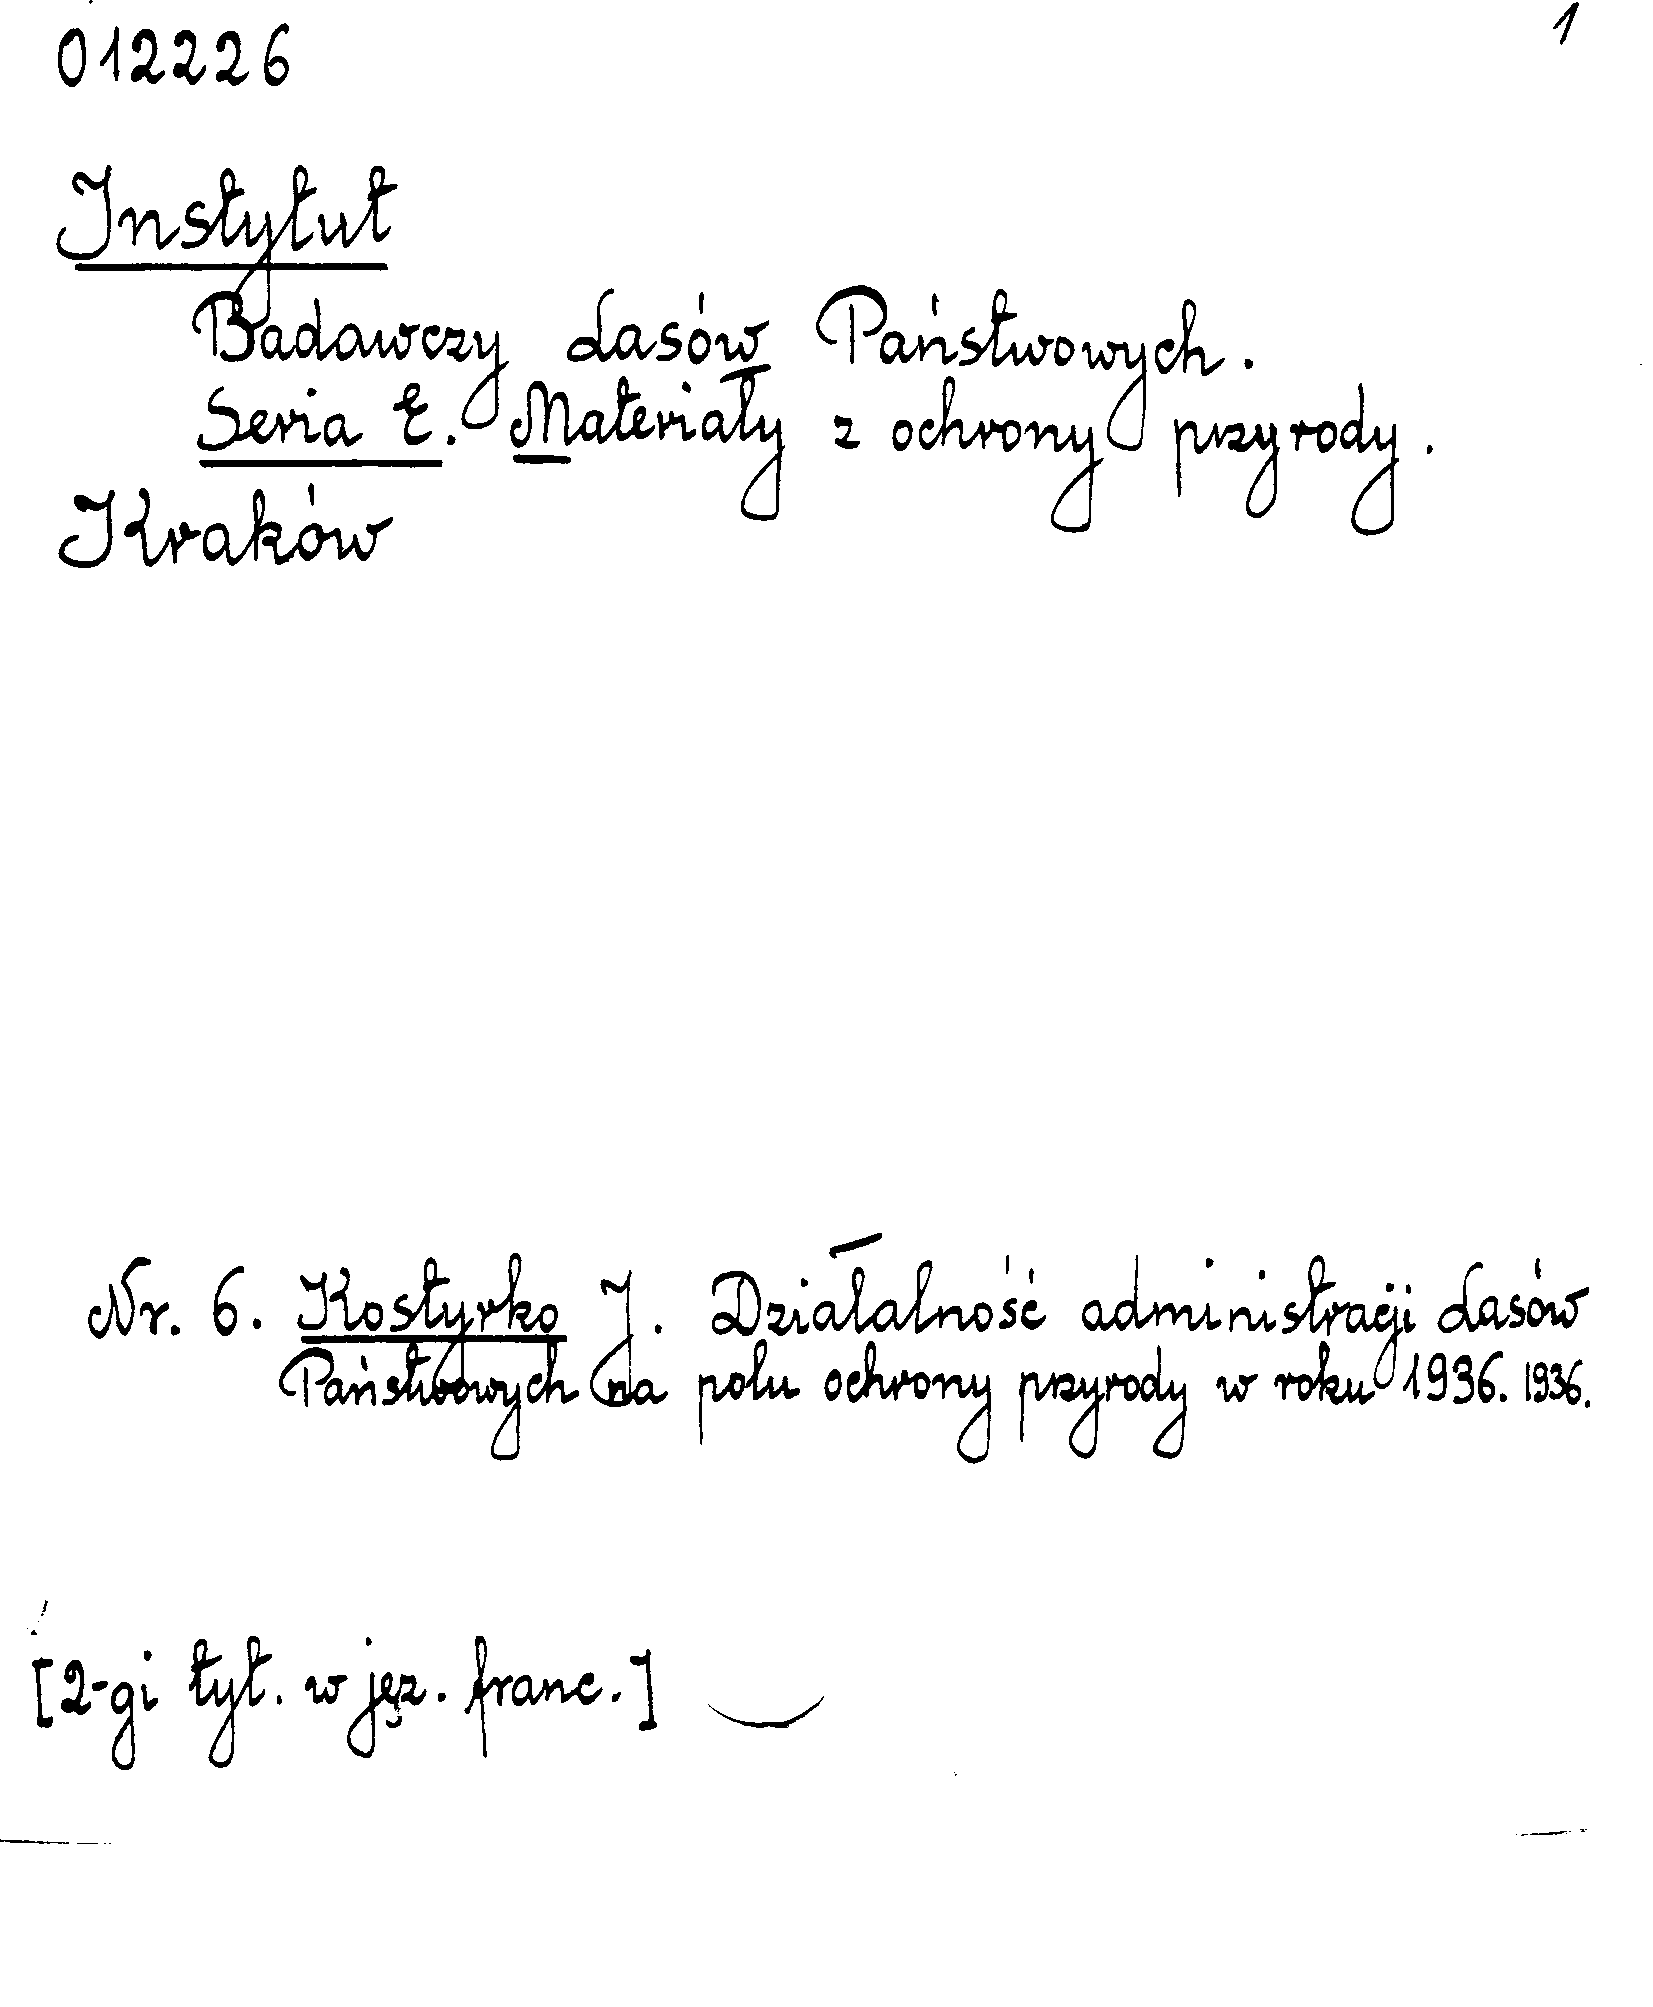 012226
1
Instytut
Badawczy Lasów Państwowych.
Seria E. Materiały z ochrony przyrody.
Kraków
Nr. 6. Kostyrko J. Działalność administracji Lasów
Państwowych na polu ochrony przyrody w roku 1936. 1936.
[2-gi tyt. w jęz. franc.]